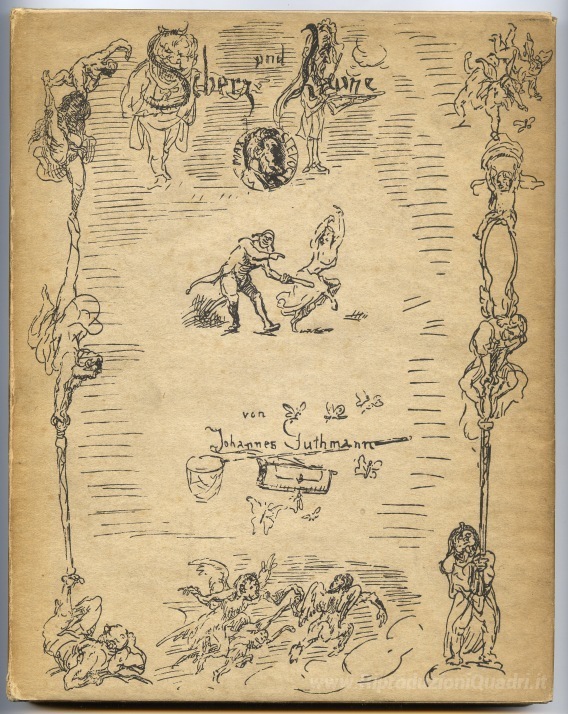 Scherz und Laune
von
Johannes Guthmann
www.RiproduzioniQuadri.it